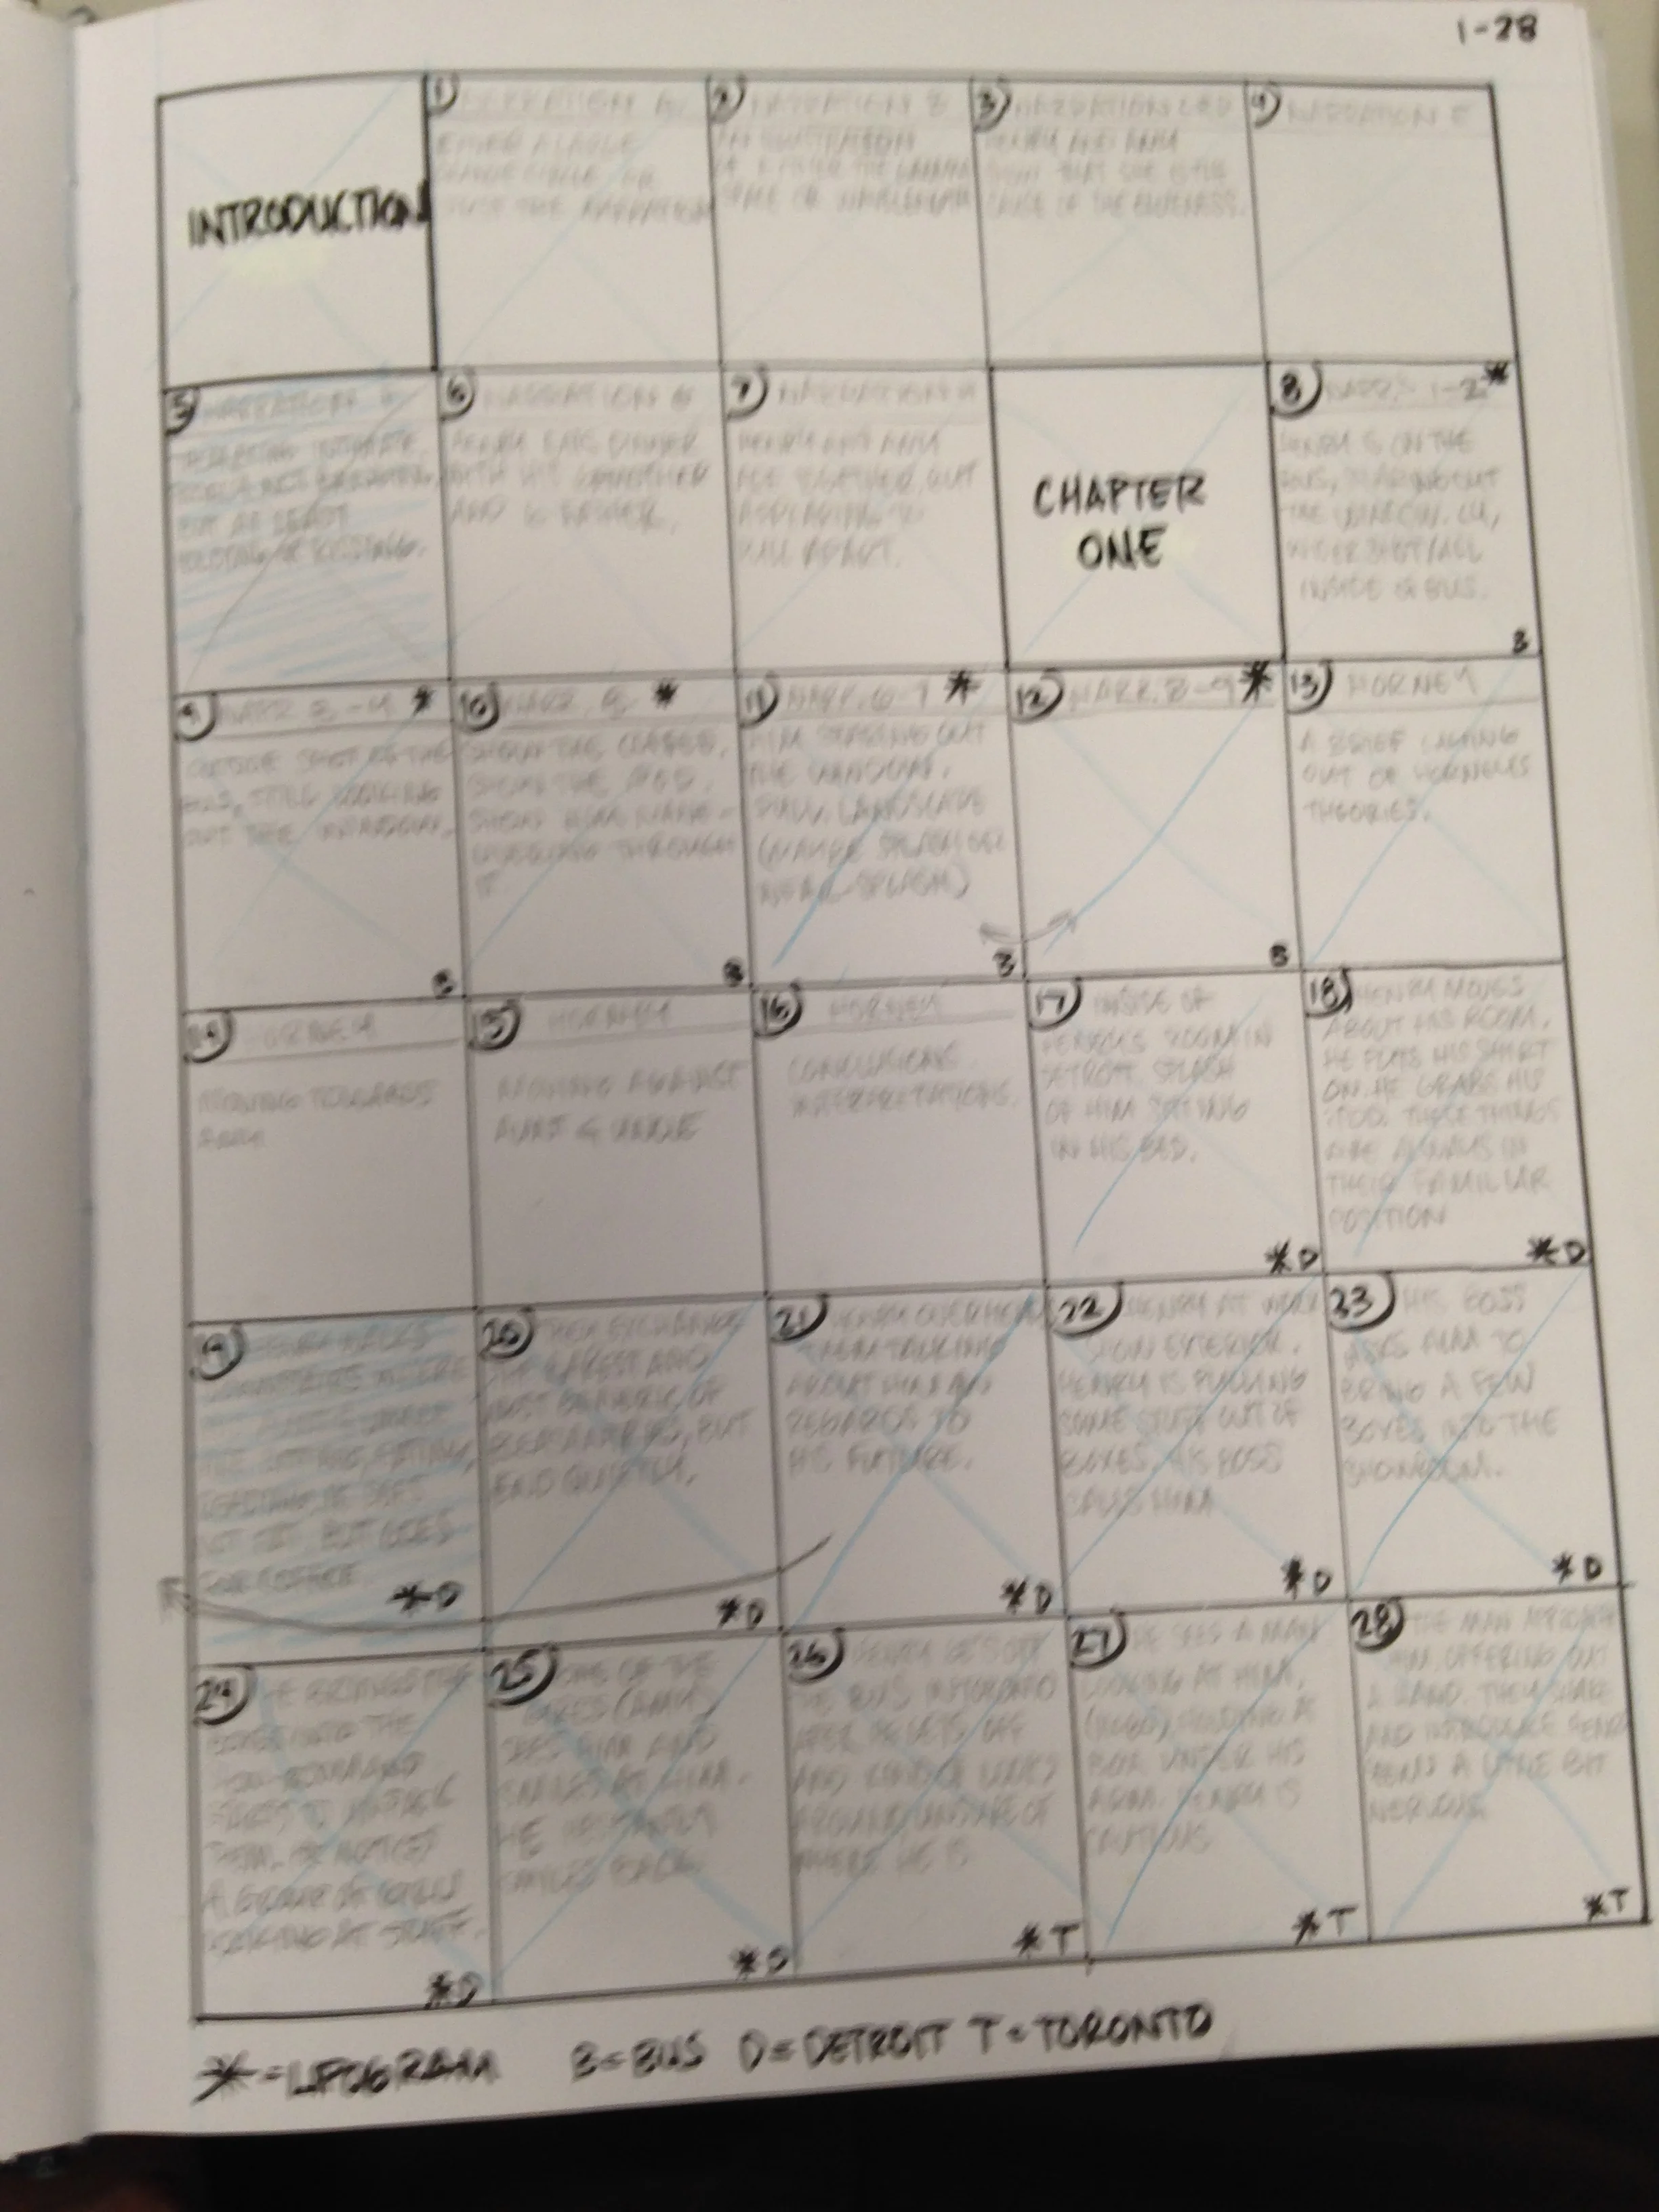 1-28
INTRODUCTION
1
NARRATION
THE NARRATION
2
NARRATION B
3
NARRATION C&D
HENRY AND
THAT SHE IS THE
CAUSE OF THE
4
NARRATION E
5
NARRATION
BUT AT LEAST
HOLDING OR KISSING.
6
NARRATION G
HENRY EATS DINNER
WITH HIS
AND
7
NARRATION H
HENRY AND
ARE TOGETHER BUT
APPEARING TO
PULL APART.
CHAPTER
ONE
8
NARR. 1-2 *
HENRY IS ON THE
BUS, STARING OUT
THE WINDOW.
WIDER SHOT/ALL
INSIDE OF BUS.
B
9
NARR 3-4 *
OUTSIDE SHOT OF THE
BUS, STILL LOOKING
OUT THE WINDOW.
B
10
NARR. 5 *
SHOW THE
SHOW THE
SHOW HIM
THROUGH
IT
B
11
NARR. 6-7 *
HIM STARING OUT
THE WINDOW.
FULL LANDSCAPE
(MAYBE SPLASH OR
HALF-SPLASH)
B
12
NARR. 8-9 *
B
13
HORNEY
A BRIEF LAYING
OUT OF HORNEY'S
THEORIES.
14
HORNEY
MOVING TOWARDS
15
HORNEY
MOVING AGAINST
AUNT & UNCLE
16
HORNEY
CONCLUSIONS
INTERPRETATIONS.
17
INSIDE OF
HENRY'S ROOM IN
DETROIT. SPLASH
OF HIM SITTING
IN HIS BED.
* D
18
HENRY MOVES
ABOUT HIS ROOM.
HE PUTS HIS SHIRT
ON. HE GRABS HIS
THESE THINGS
ARE ALWAYS IN
THEIR FAMILIAR
POSITION
* D
19
HENRY WALKS
DOWNSTAIRS WHERE
AUNT & UNCLE
ARE SITTING, EATING,
READING. HE DOES
NOT EAT BUT DOES
COFFEE.
* D
20
THEY EXCHANGE
THE BAREST AND
MOST GENERIC OF
PLEASANTRIES, BUT
END QUIETLY.
* D
21
HENRY OVERHEARS
THEM TALKING
ABOUT HIM AND
REGARDS TO
HIS FUTURE.
* D
22
HENRY AT WORK
SHOW EXTERIOR.
HENRY IS PULLING
SOME STUFF OUT OF
BOXES. HIS BOSS
CALLS HIM
* D
23
HIS BOSS
ASKS HIM TO
BRING A FEW
BOXES INTO THE
SHOWROOM.
* D
24
HE BRINGS THE
BOXES INTO THE
SHOWROOM AND
STARTS TO UNPACK
THEM. HE NOTICES
A GROUP OF GIRLS
LOOKING AT STUFF.
* D
25
ONE OF THE
SEES HIM AND
SMILES AT HIM.
HE HESITANTLY
SMILES BACK
* D
26
HENRY GETS OFF
THE BUS IN TORONTO
HE GETS OFF
AND KIND OF LOOKS
AROUND, UNSURE OF
WHERE HE IS
* T
27
HE SEES A MAN
LOOKING AT HIM,
HOLDING A
BOX UNDER HIS
ARM. HENRY IS
CAUTIOUS
* T
28
THE MAN APPROACHES
HIM, OFFERING OUT
A HAND. THEY SHAKE
AND INTRODUCE. HENRY
SEEMS A LITTLE BIT
NERVOUS
* T
* = LIPOGRAM B = BUS D = DETROIT T = TORONTO